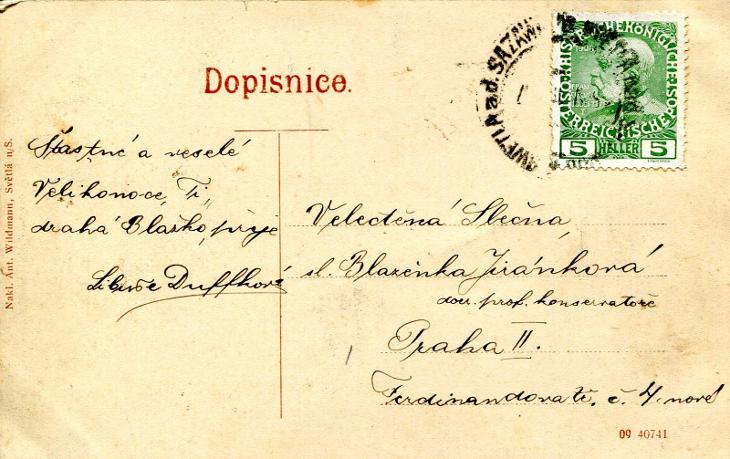 Dopisnice.
Šťastné a veselé
Velikonoce, Ti,
drahá Blažko, přeje
Libuše Duffková
Velectěná Slečna,
sl. Blaženka Jiránková
dcer. prof. konservatoře
Praha II.
Ferdinandova tř. č. 4. nové
Nakl. Ant. Wildmann, Světlá n/S.
09 40741
KAISERLICHEKÖNIGLICHE
ÖSTERREICHISCHE
5 HELLER 5
nad SÁZAW